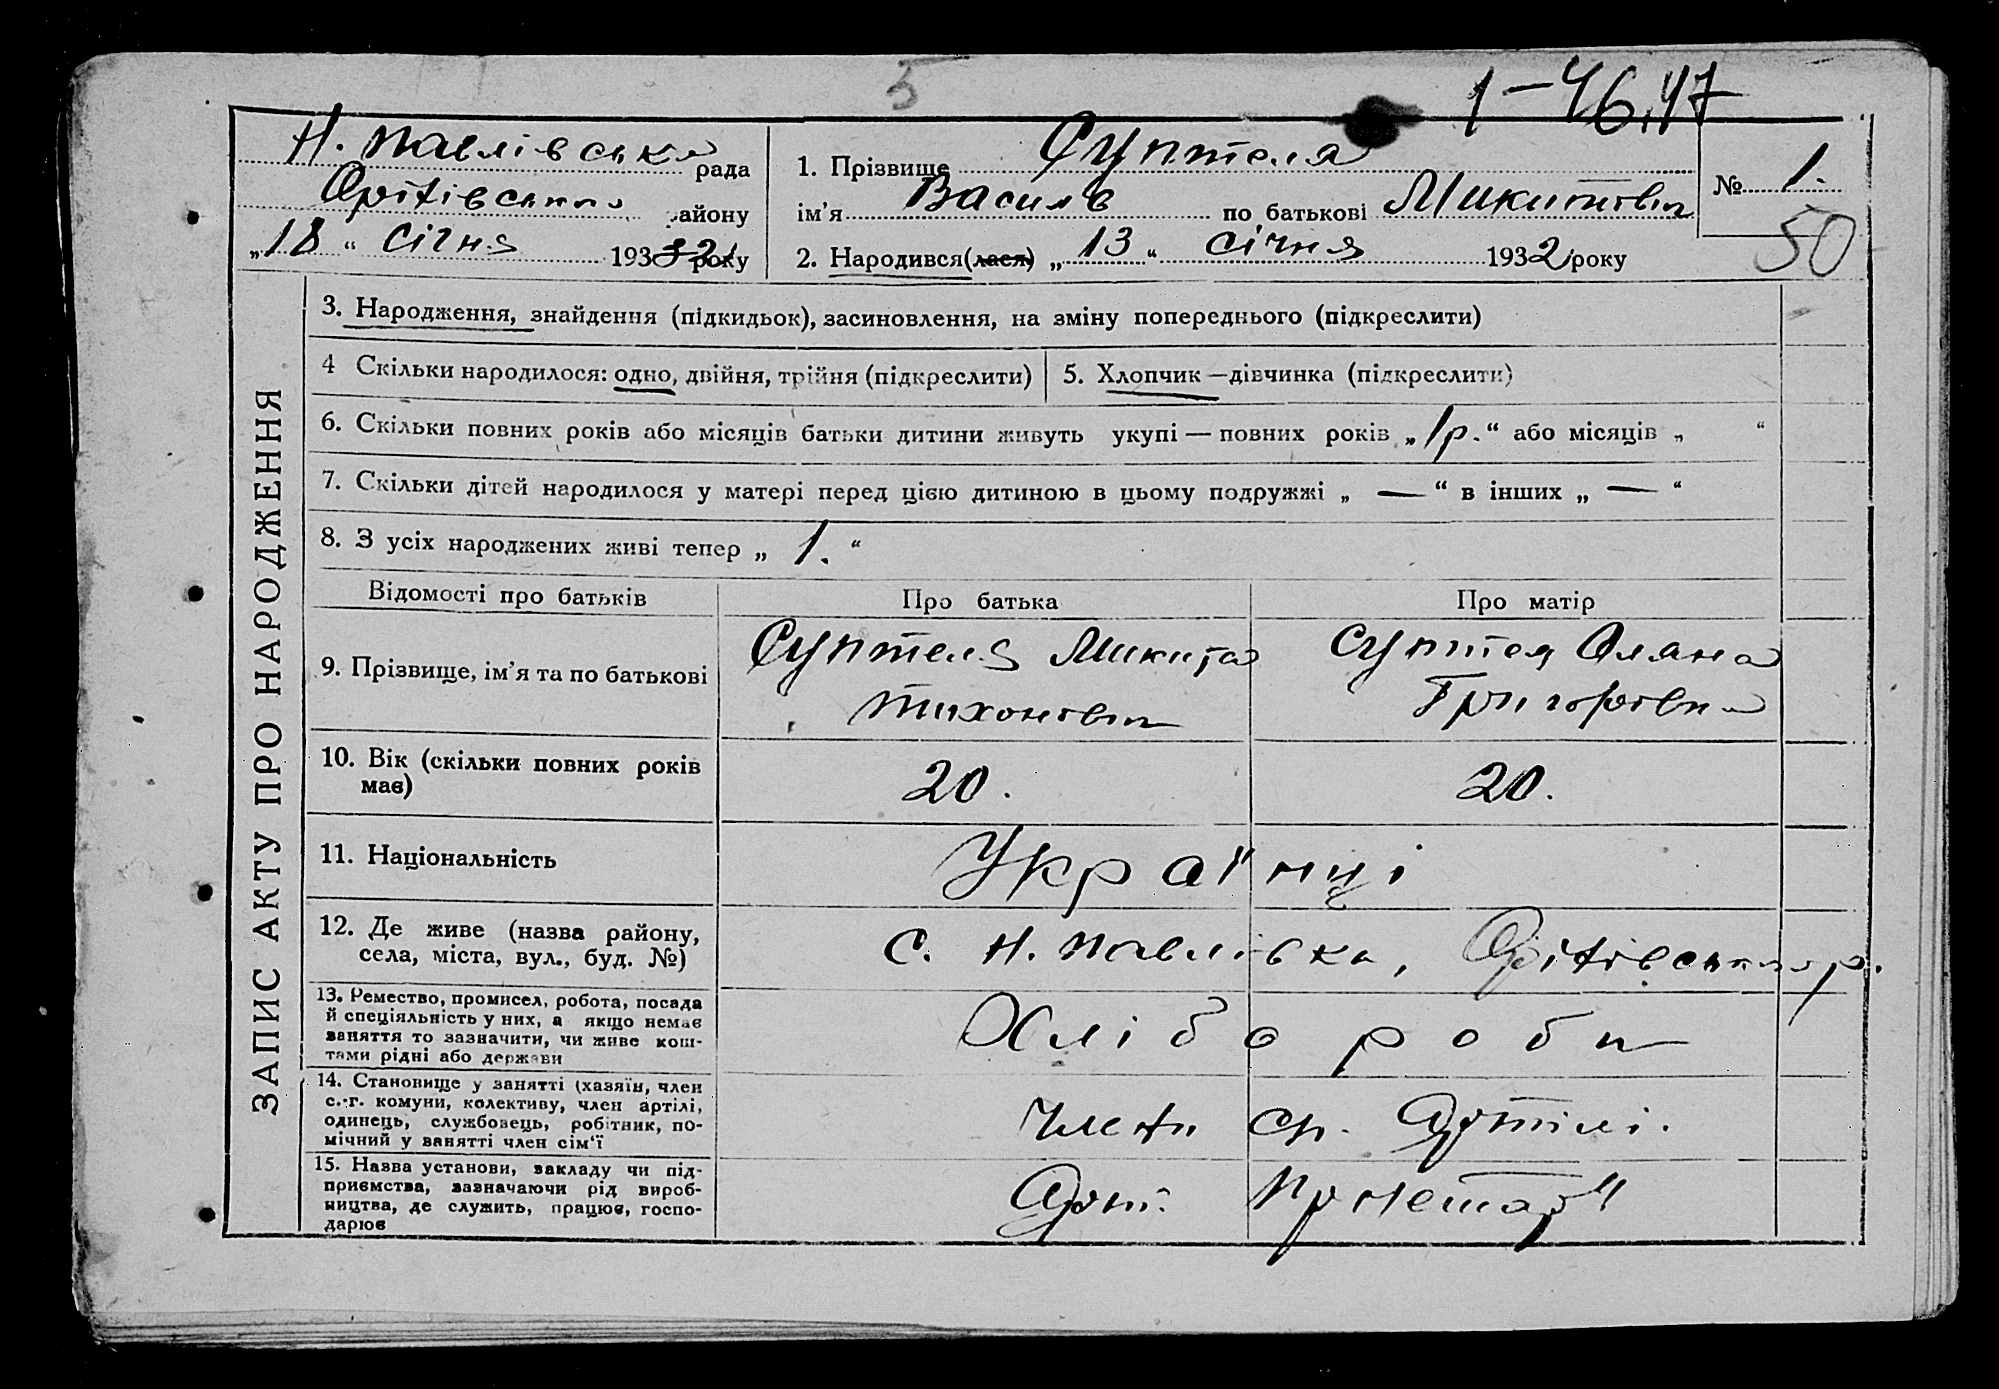 5
1-46,47
Н. Павлівська рада
Оріхівського району
„18“ Січня 1932 року
1. Прізвище Суптеля
ім’я Василь по батькові Микитович
2. Народився(лася) „13“ Січня 1932 року
№ 1.
50
ЗАПИС АКТУ ПРО НАРОДЖЕННЯ
3. Народження, знайдення (підкидьок), засиновлення, на зміну попереднього (підкреслити)
4 Скільки народилося: одно, двійня, трійня (підкреслити)
5. Хлопчик—дівчинка (підкреслити)
6. Скільки повних років або місяців батьки дитини живуть укупі — повних років „1р.“ або місяців „ “
7. Скільки дітей народилося у матері перед цією дитиною в цьому подружжі „ — “ в інших „ — “
8. З усіх народжених живі тепер „ 1. “
Відомості про батьків
Про батька
Про матір
9. Прізвище, ім’я та по батькові
Суптеля Микита
Тихонович
Суптеля Оляна
Григорівна
10. Вік (скільки повних років
має)
20.
20.
11. Національність
Українці
12. Де живе (назва району,
села, міста, вул., буд. №)
С. Н. Павлівка, Оріхівського р.
13. Ремество, промисел, робота, посада
й спеціяльність у них, а якщо немає
заняття то зазначити, чи живе кош-
тами рідні або держави
Хлібороби
14. Становище у занятті (хазяїн, член
с.-г. комуни, колективу, член артілі,
одинець, службовець, робітник, по-
мічний у занятті член сім‘ї
Члени Сп. Артілі.
15. Назва установи, закладу чи під-
приємства, зазначаючи рід вироб-
ництва, де служить, працює, госпо-
дарює
Арт.